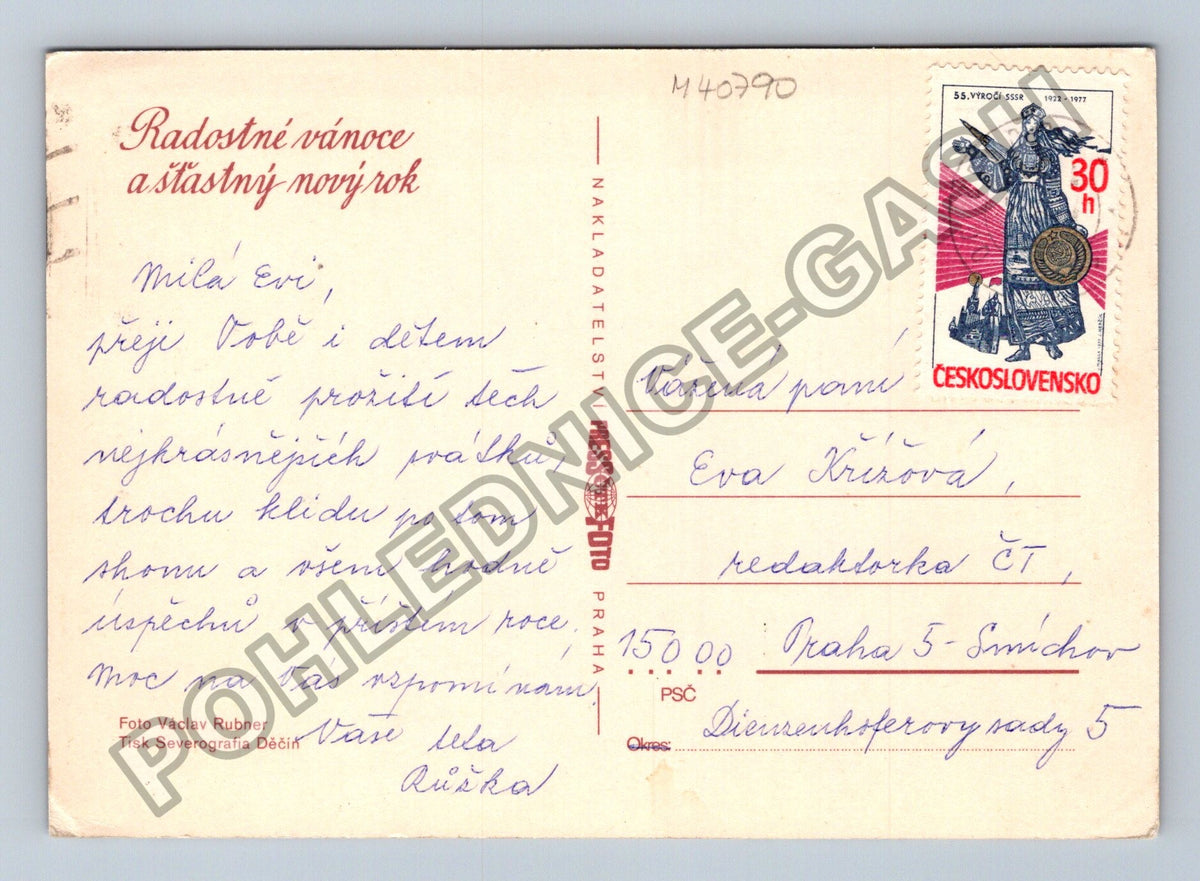 M 40790
Radostné vánoce
a šťastný nový rok
Milá Evi,
přeji Tobě i dětem
radostné prožití těch
nejkrásnějších svátků,
trochu klidu po tom
shonu a všem hodně
úspěchů v příštím roce.
Moc na Vás vzpomínám.
Vaše teta
Růžka
Foto Václav Rubner
Tisk Severografia Děčín
NAKLADATELSTVÍ
PRESSFOTO
PRAHA
55. VÝROČÍ SSSR 1922 - 1977
30
h
ČESKOSLOVENSKO
Vážená paní
Eva Křížová,
redaktorka ČT,
150 00 Praha 5 - Smíchov
PSČ
Dienzenhoferovy sady 5
Okres:
POHLEDNICE-GASH